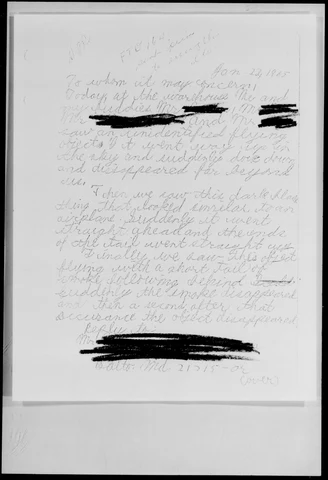 Jan 22, 1965
To whom it may concern:
Today at the warehouse Me and
my buddies Mr.
Mr. and Mr.
saw an unidentified flying
object. It went way up in
the sky and suddenly dove down
and disappeared far beyond
us.
Then we saw this dark
thing that looked similar to an
airplane. Suddenly it went
straight ahead and the ends
of the tail went straight up.
Finally we saw this object
flying with a short tail of
smoke following behind
suddenly the smoke disappeared
and then a second after that
the object disappeared.
Reply to:
Mr.
Balto. Md. 21215-02
(over)